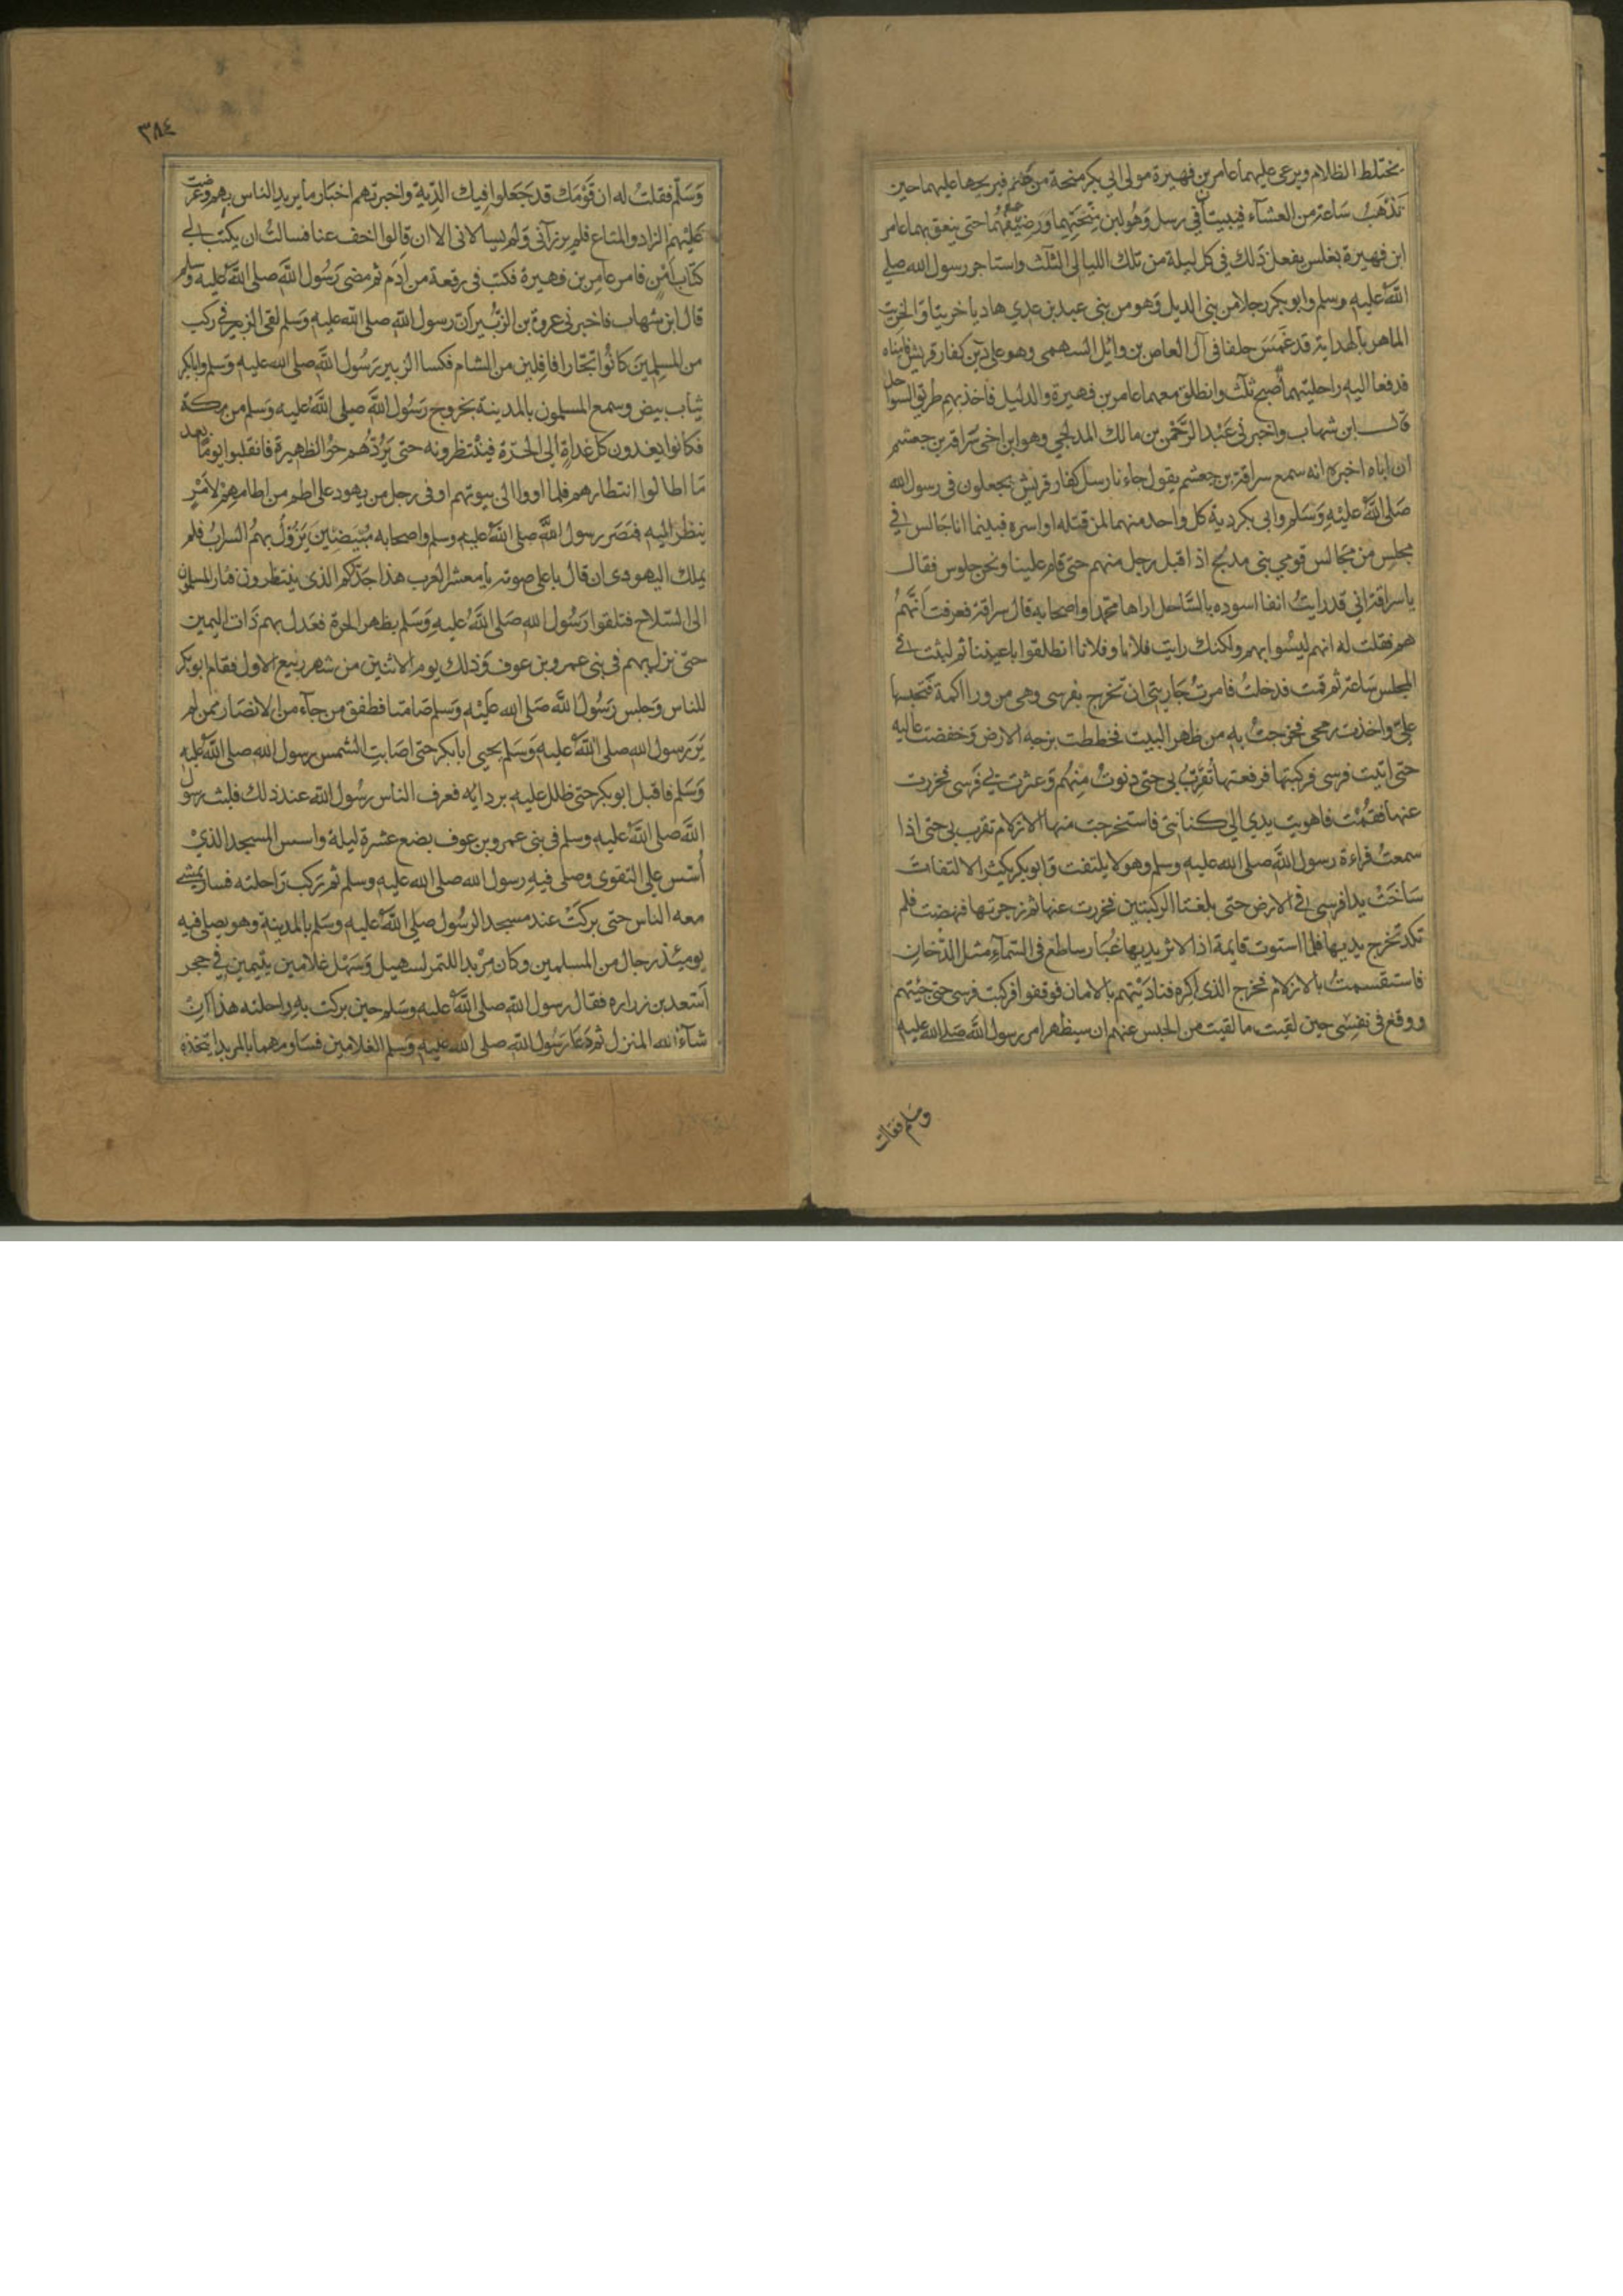 يختلط الظلام ويرعى عليهما عامر بن فهيرة مولى ابي بكر منحة من غنم فيريحها عليهما حين
تذهب ساعة من العشآء فيبيتان في رسل وهو لبن منحتهما ورضيفهما حتى ينعق بهما عامر
ابن فهيرة بغلس يفعل ذلك في كل ليلة من تلك الليالى الثلث واستاجر رسول الله صلى
الله عليه وسلم وابو بكر رجلا من بنى الديل وهو من بنى عبد بن عدي هاديا خريتا والخريت
الماهر بالهداية قد غمس حلفا فى آل العاص بن وائل السهمى وهو على دين كفار قريش فامناه
فدفعا اليه راحلتيهما صبح ثلث وانطلق معهما عامر بن فهيرة والدليل فاخذ بهم طريق السواحل
قال ابن شهاب واخبرنى عبد الرحمن بن مالك المدلجى وهو ابن اخى سراقة بن جعشم
ان اباه اخبره انه سمع سراقة بن جعشم يقول جاءنا رسل كفار قريش يجعلون فى رسول الله
صلى الله عليه وسلم وابى بكر دية كل واحد منهما لمن قتله او اسره فبينما انا جالس في
مجلس من مجالس قومي بنى مدلج اذ اقبل رجل منهم حتى قام علينا ونحن جلوس فقال
ياسراقة اني قد رايت انفا اسوده بالساحل اراها محمدا واصحابه قال سراقة فعرفت انهم
هم فقلت له انهم ليسوا بهم ولكنك رايت فلانا وفلانا انطلقوا باعيننا ثم لبثت في
المجلس ساعة ثم قمت فدخلت فامرت جاريتى ان تخرج بفرسى وهى من ورا اكمة فتحبسها
علي واخذت رمحى فخرجت به من ظهر البيت فخططت بزجه الارض وخفضت عاليه
حتى اتيت فرسى فركبتها فرفعتها تقرب بى حتى دنوت منهم وعثرت بي فرسى فخررت
عنها فقمت فاهويت يدي الى كنانتى فاستخرجت منها الازلام تقرب بى حتى اذا
سمعت قراءة رسول الله صلى الله عليه وسلم وهو لا يلتفت وابو بكر يكثر الالتفات
ساخت يدا فرسى في الارض حتى بلغتا الركبتين فخررت عنها ثم زجرتها فنهضت فلم
تكد تخرج يديها فلما استوت قايمة اذا لاثر يديها غبار ساطع فى السمآء مثل الدخان
فاستقسمت بالازلام فخرج الذى اكره فناديتهم بالامان فوقفوا فركبت فرسى حتى جئتهم
ووقع فى نفسى حين لقيت ما لقيت من الحبس عنهم ان سيظهر امر رسول الله صلى الله عليه
وسلم فقلت
٣٨٤
وسلم فقلت له ان قومك قد جعلوا فيك الدية واخبرتهم اخبار ما يريد الناس بهم وعرضت
عليهم الزاد والمتاع فلم يرزآنى ولم يسالانى الا ان قالوا اخف عنا فسالت ان يكتب لى
كتاب امن فامر عامر بن فهيرة فكتب فى رقعة من ادم ثم مضى رسول الله صلى الله عليه وسلم
قال ابن شهاب فاخبرنى عروة بن الزبير ان رسول الله صلى الله عليه وسلم لقى الزبير في ركب
من المسلمين كانوا تجارا قافلين من الشام فكسا الزبير رسول الله صلى الله عليه وسلم وابا بكر
ثياب بيض وسمع المسلمون بالمدينة بخروج رسول الله صلى الله عليه وسلم من مكة
فكانوا يغدون كل غداة الى الحرة فينتظرونه حتى يردهم حر الظهيرة فانقلبوا يوما بعد
ما اطالوا انتظارهم فلما اووا الى بيوتهم اوفى رجل من يهود على اطم من اطامهم لامر
ينظر اليه فبصر رسول الله صلى الله عليه وسلم واصحابه مبيضين يزول بهم السراب فلم
يملك اليهودى ان قال باعلى صوته يا معشر العرب هذا جدكم الذى ينتظرون فثار المسلمون
الى السلاح فتلقوا رسول الله صلى الله عليه وسلم بظهر الحرة فعدل بهم ذات اليمين
حتى نزل بهم فى بنى عمرو بن عوف وذلك يوم الاثنين من شهر ربيع الاول فقام ابو بكر
للناس وجلس رسول الله صلى الله عليه وسلم صامتا فطفق من جآء من الانصار ممن لم
ير رسول الله صلى الله عليه وسلم يحيى ابا بكر حتى اصابت الشمس رسول الله صلى الله عليه
وسلم فاقبل ابو بكر حتى ظلل عليه بردايه فعرف الناس رسول الله عند ذلك فلبث رسول
الله صلى الله عليه وسلم فى بنى عمرو بن عوف بضع عشرة ليلة واسس المسجد الذي
أسس على التقوى وصلى فيه رسول الله صلى الله عليه وسلم ثم ركب راحلته فسار يمشى
معه الناس حتى بركت عند مسجد الرسول صلى الله عليه وسلم بالمدينة وهو يصلى فيه
يومئذ رجال من المسلمين وكان مربدا للتمر لسهيل وسهل غلامين يتيمين في حجر
اسعد بن زراره فقال رسول الله صلى الله عليه وسلم حين بركت به راحلته هذا ان
شآء الله المنزل ثم دعا رسول الله صلى الله عليه وسلم الغلامين فساومهما بالمربد ليتخذه